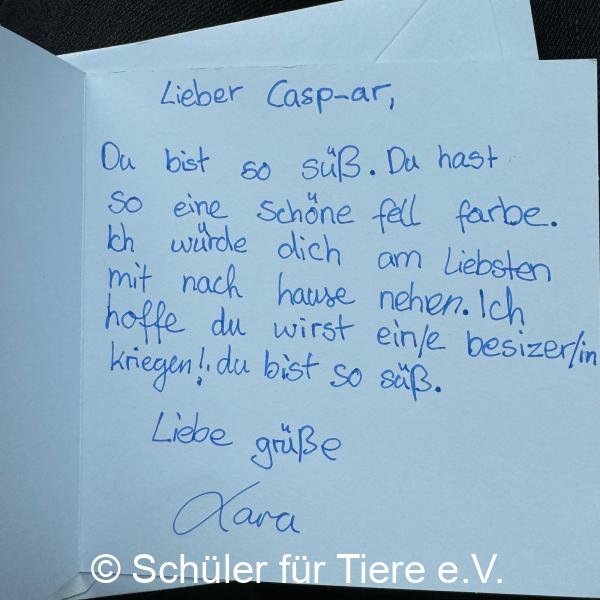 Lieber Casp-ar,
Du bist so süß. Du hast
so eine schöne fell farbe.
Ich würde dich am Liebsten
mit nach hause nehen. Ich
hoffe du wirst ein/e besizer/in
kriegen!. du bist so süß.
Liebe grüße
Lara
© Schüler für Tiere e.V.